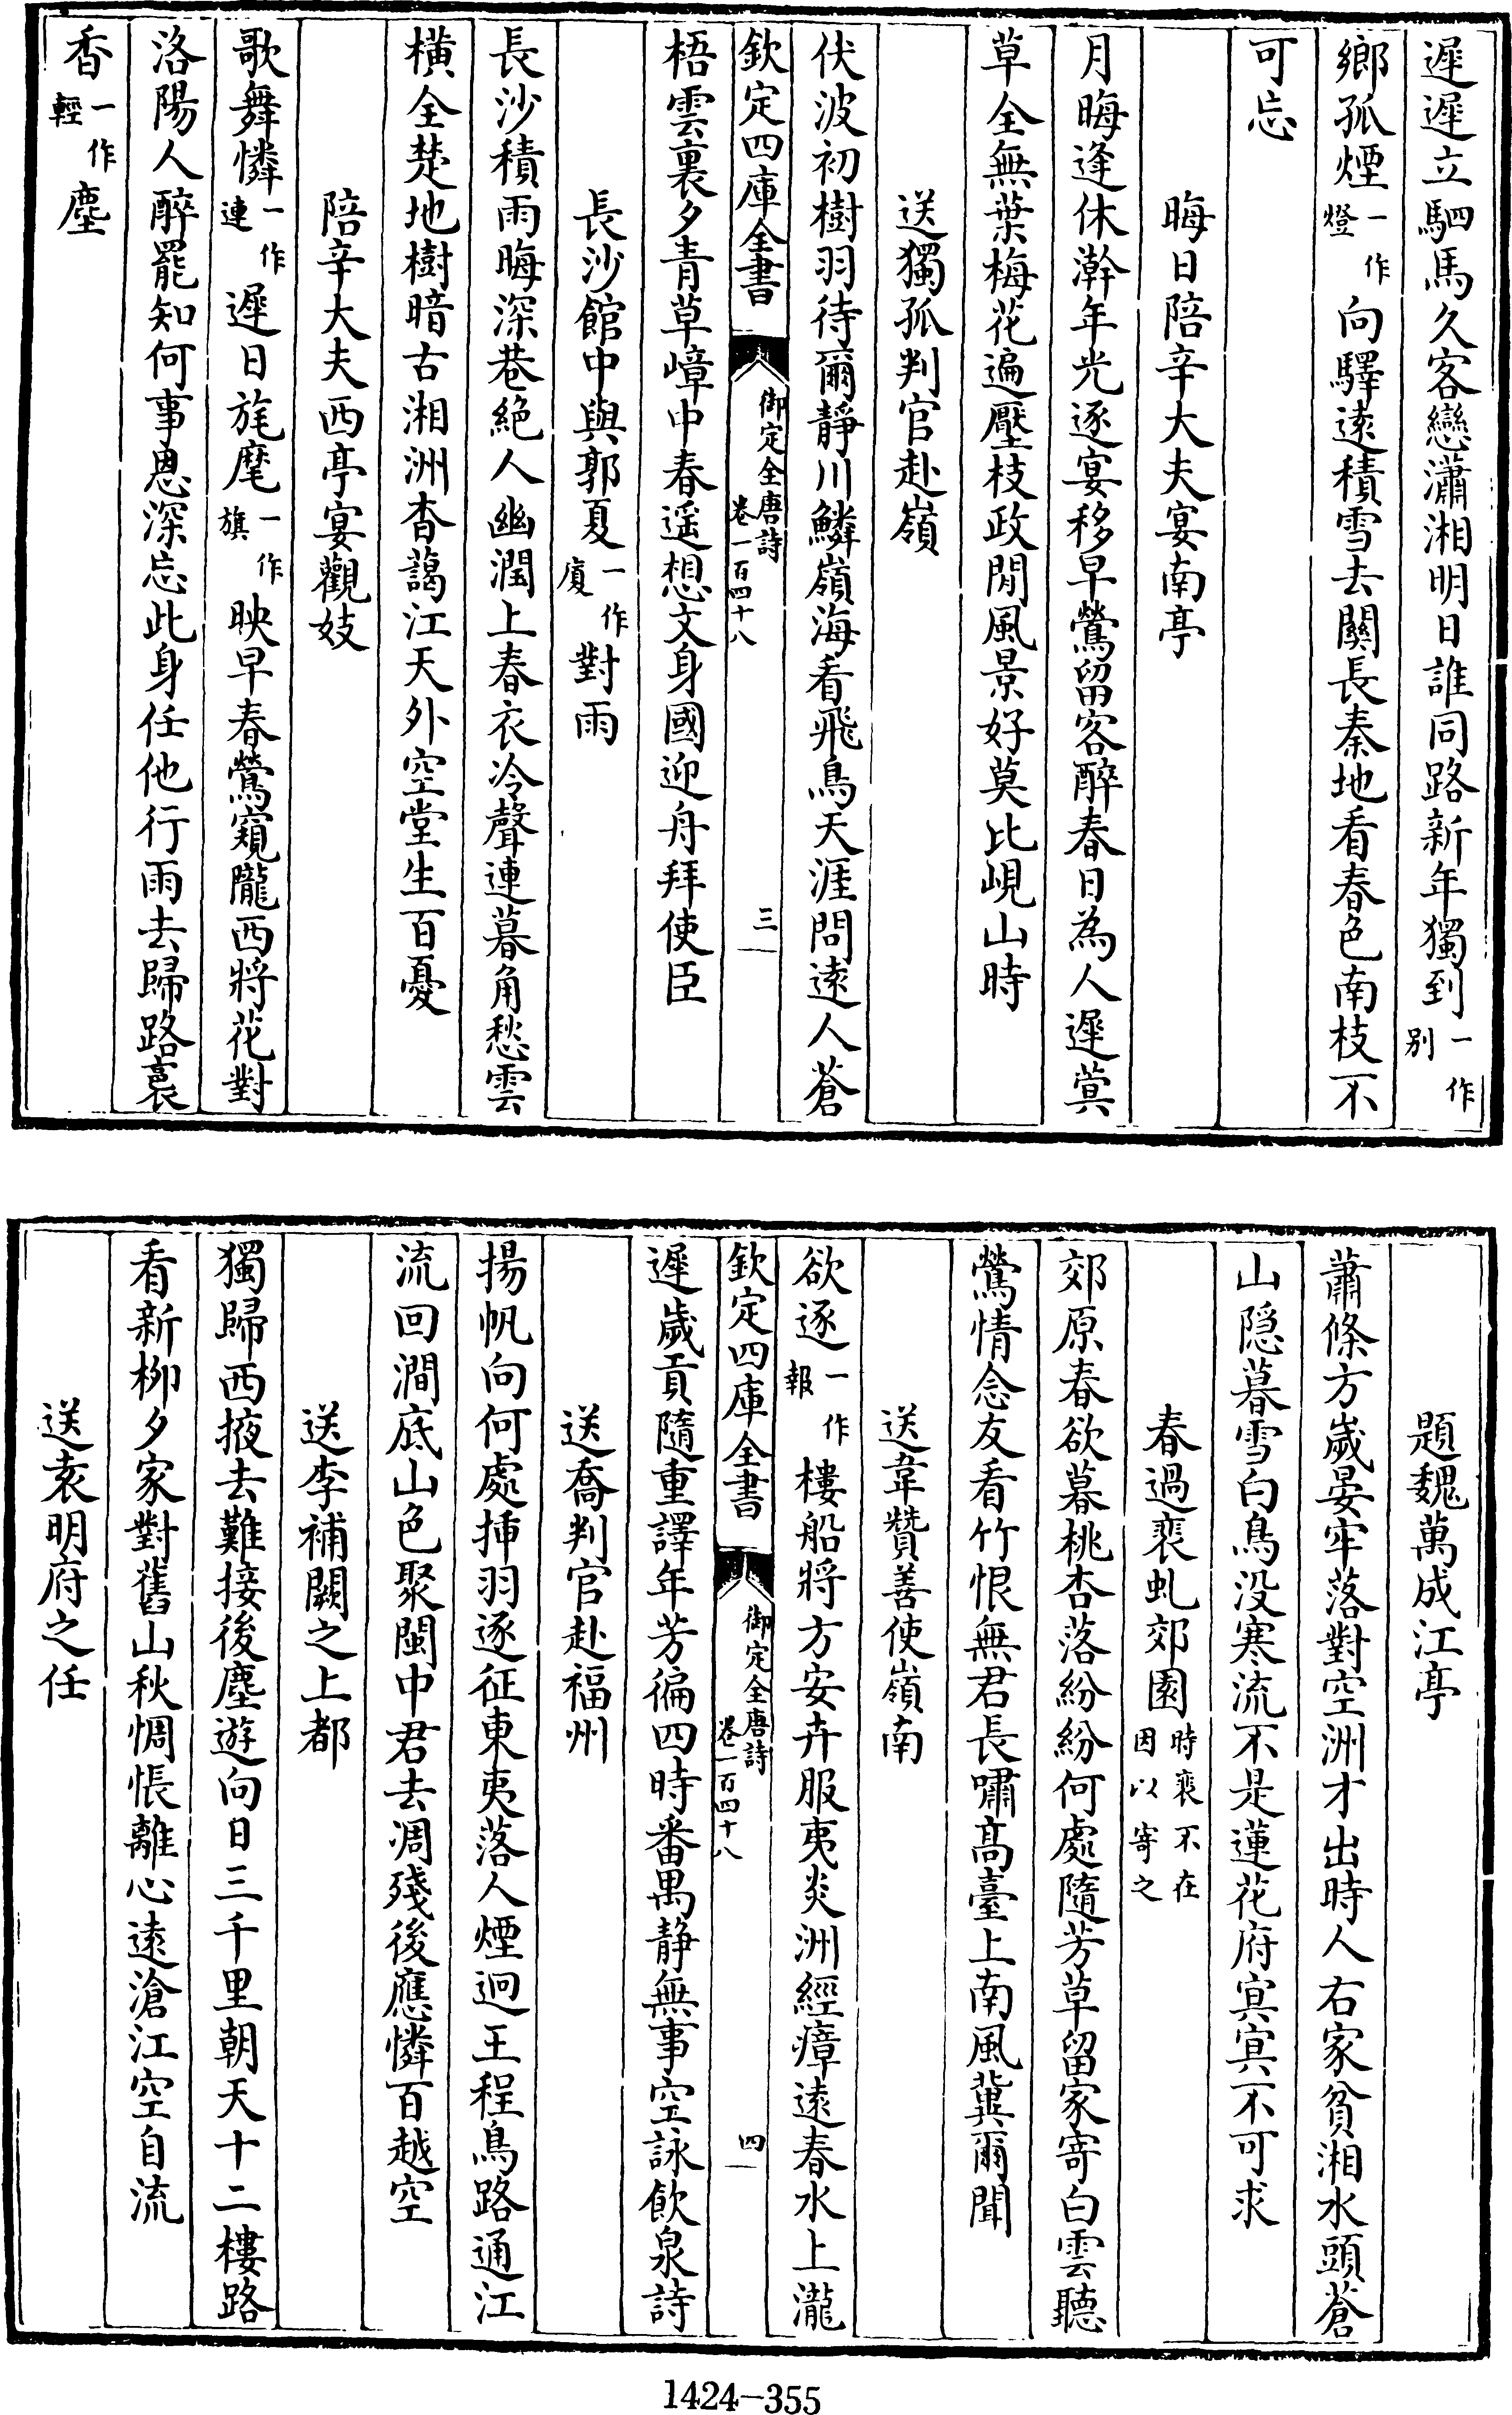 遲遲立駟馬久客戀瀟湘明日誰同路新年獨到一作別
鄉孤煙一作燈向驛遠積雪去關長秦地看春色南枝不
可忘
晦日陪辛大夫宴南亭
月晦逢休澣年光逐宴移早鶯留客醉春日為人遲蓂
草全無葉梅花遍壓枝政閒風景好莫比峴山時
送獨孤判官赴嶺
伏波初樹羽待爾靜川鱗嶺海看飛鳥天涯問遠人蒼
欽定四庫全書 御定全唐詩 卷一百四十八 三
梧雲裏夕青草嶂中春遥想文身國迎舟拜使臣
長沙館中與郭夏一作廈對雨
長沙積雨晦深巷絶人幽潤上春衣冷聲連暮角愁雲
橫全楚地樹暗古湘洲杳藹江天外空堂生百憂
陪辛大夫西亭宴觀妓
歌舞憐一作連遲日旄麾一作旗映早春鶯窺隴西將花對
洛陽人醉罷知何事恩深忘此身任他行雨去歸路裛
香一作輕塵
題魏萬成江亭
蕭條方歲晏牢落對空洲才出時人右家貧湘水頭蒼
山隱暮雪白鳥没寒流不是蓮花府冥冥不可求
春過裴虬郊園時裴不在因以寄之
郊原春欲暮桃杏落紛紛何處隨芳草留家寄白雲聽
鶯情念友看竹恨無君長嘯高臺上南風冀爾聞
送韋贊善使嶺南
欲逐一作報樓船將方安卉服夷炎洲經瘴遠春水上瀧
欽定四庫全書 御定全唐詩 卷一百四十八 四
遲歲貢隨重譯年芳徧四時番禺静無事空詠飲泉詩
送喬判官赴福州
揚帆向何處插羽逐征東夷落人煙迥王程鳥路通江
流回澗底山色聚閩中君去凋殘後應憐百越空
送李補闕之上都
獨歸西掖去難接後塵遊向日三千里朝天十二樓路
看新柳夕家對舊山秋惆悵離心遠滄江空自流
送袁明府之任
1424-355